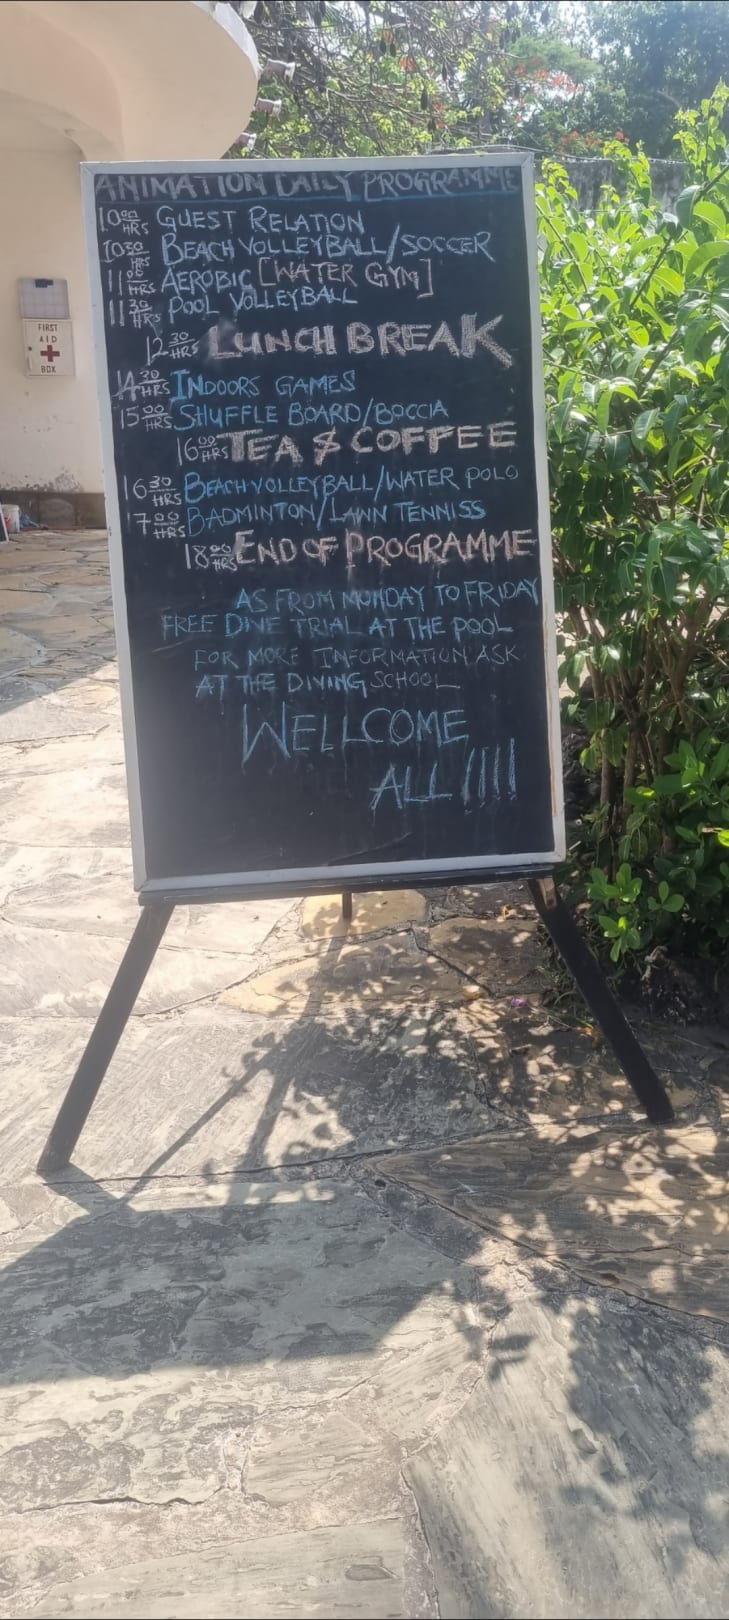 ANIMATION DAILY PROGRAMME
10 00 HRS GUEST RELATION
10 30 HRS BEACH VOLLEYBALL/SOCCER
11 00 HRS AEROBIC [WATER GYM]
11 30 HRS POOL VOLLEYBALL
12 30 HRS LUNCH BREAK
14 30 HRS INDOORS GAMES
15 00 HRS SHUFFLE BOARD/BOCCIA
16 00 HRS TEA & COFFEE
16 30 HRS BEACH VOLLEYBALL/WATER POLO
17 00 HRS BADMINTON/LAWN TENNISS
18 00 HRS END OF PROGRAMME
AS FROM MONDAY TO FRIDAY
FREE DIVE TRIAL AT THE POOL
FOR MORE INFORMATION ASK
AT THE DIVING SCHOOL
WELLCOME
ALL!!!!
FIRST
AID
BOX